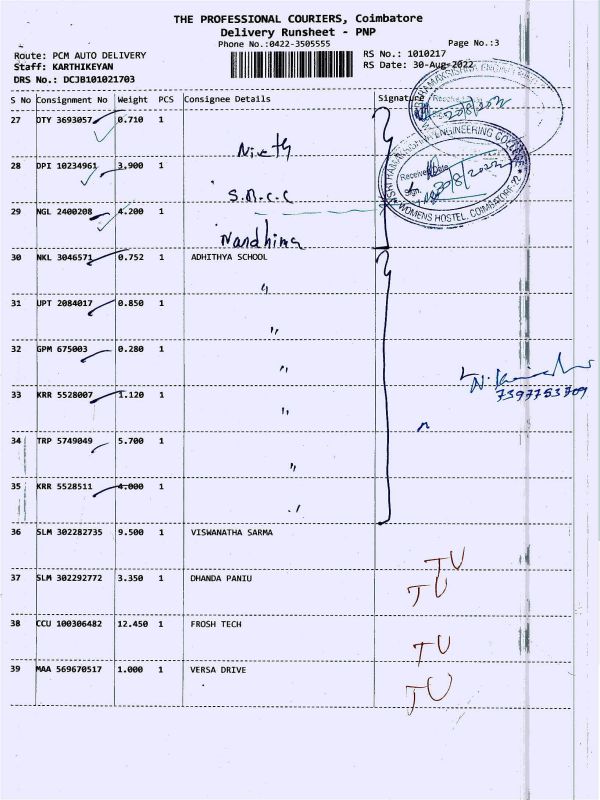 THE PROFESSIONAL COURIERS, Coimbatore
Delivery Runsheet - PNP
Phone No.:0422-3505555 Page No.:3
Route: PCM AUTO DELIVERY RS No.: 1010217
Staff: KARTHIKEYAN RS Date: 30-Aug-2022
DRS No.: DCJB101021703
S No Consignment No Weight PCS Consignee Details Signature
27 DTY 3693057 0.710 1
28 DPI 10234961 3.900 1
S.R.C.C
29 NGL 2400208 4.200 1
Nandhina
30 NKL 3046571 0.752 1 ADHITHYA SCHOOL
31 UPT 2084017 0.850 1 "
32 GPM 675003 0.280 1 "
33 KRR 5528007 1.120 1 "
34 TRP 5749049 5.700 1 "
35 KRR 5528511 4.000 1 "
36 SLM 302282735 9.500 1 VISWANATHA SARMA TU
37 SLM 302292772 3.350 1 DHANDA PANIU TU
38 CCU 100306482 12.450 1 FROSH TECH TU
39 MAA 569670517 1.000 1 VERSA DRIVE TU
SRI RAMAKRISHNA ENGINEERING COLLEGE
Received
WOMENS HOSTEL, COIMBATORE
7397753709